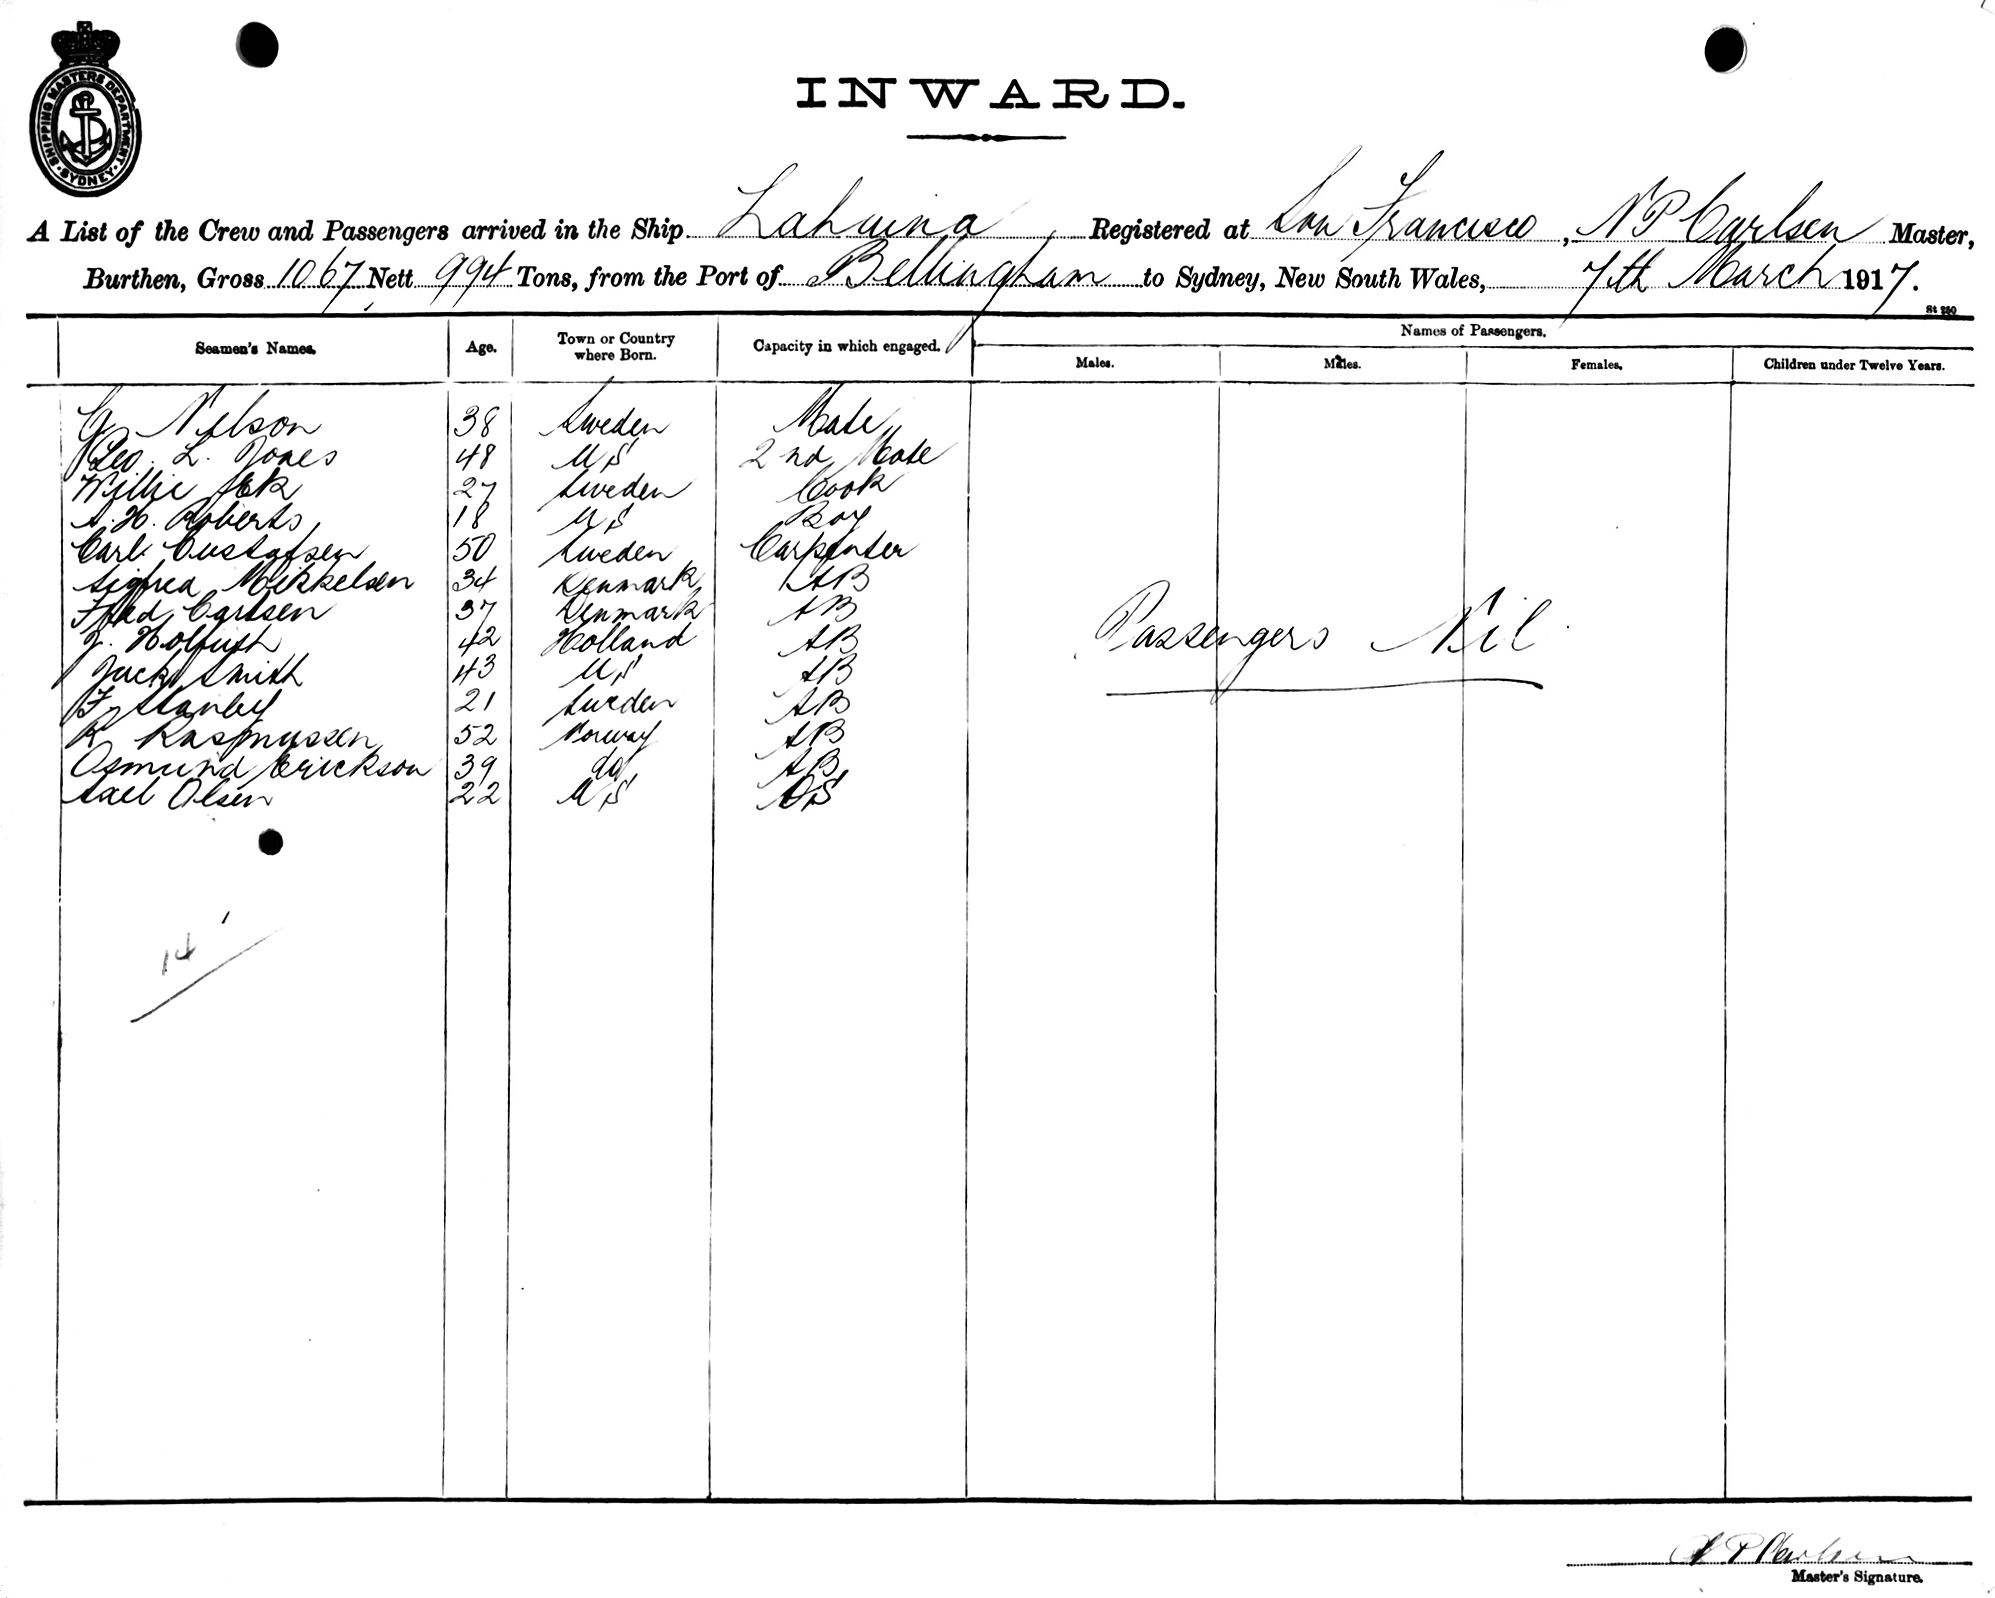 SHIPPING MASTERS DEPARTMENT
SYDNEY
INWARD.
A List of the Crew and Passengers arrived in the Ship Lahaina Registered at San Francisco, N P Carlsen Master,
Burthen, Gross 1067 Nett 994 Tons, from the Port of Bellingham to Sydney, New South Wales, 7th March 1917.
St 250
Seamen's Names. Age. Town or Country where Born. Capacity in which engaged. Names of Passengers.
Males. Males. Females. Children under Twelve Years.
G Nelson 38 Sweden Mate
Geo. L. Jones 48 US 2nd Mate
Willie Ek 27 Sweden Cook
A. H. Roberts 18 US Boy
Carl Gustafsen 50 Sweden Carpenter
Sigfred Mikkelsen 34 Denmark AB
Fred Carlsen 37 Denmark AB
42 Holland AB
Jack Smith 43 US AB
F Stanley 21 Sweden AB
R Rasmussen 52 Norway AB
Osmund Erickson 39 do AB
Axel Olsen 22 US OS
Passengers Nil
14
N P Carlsen
Master's Signature.